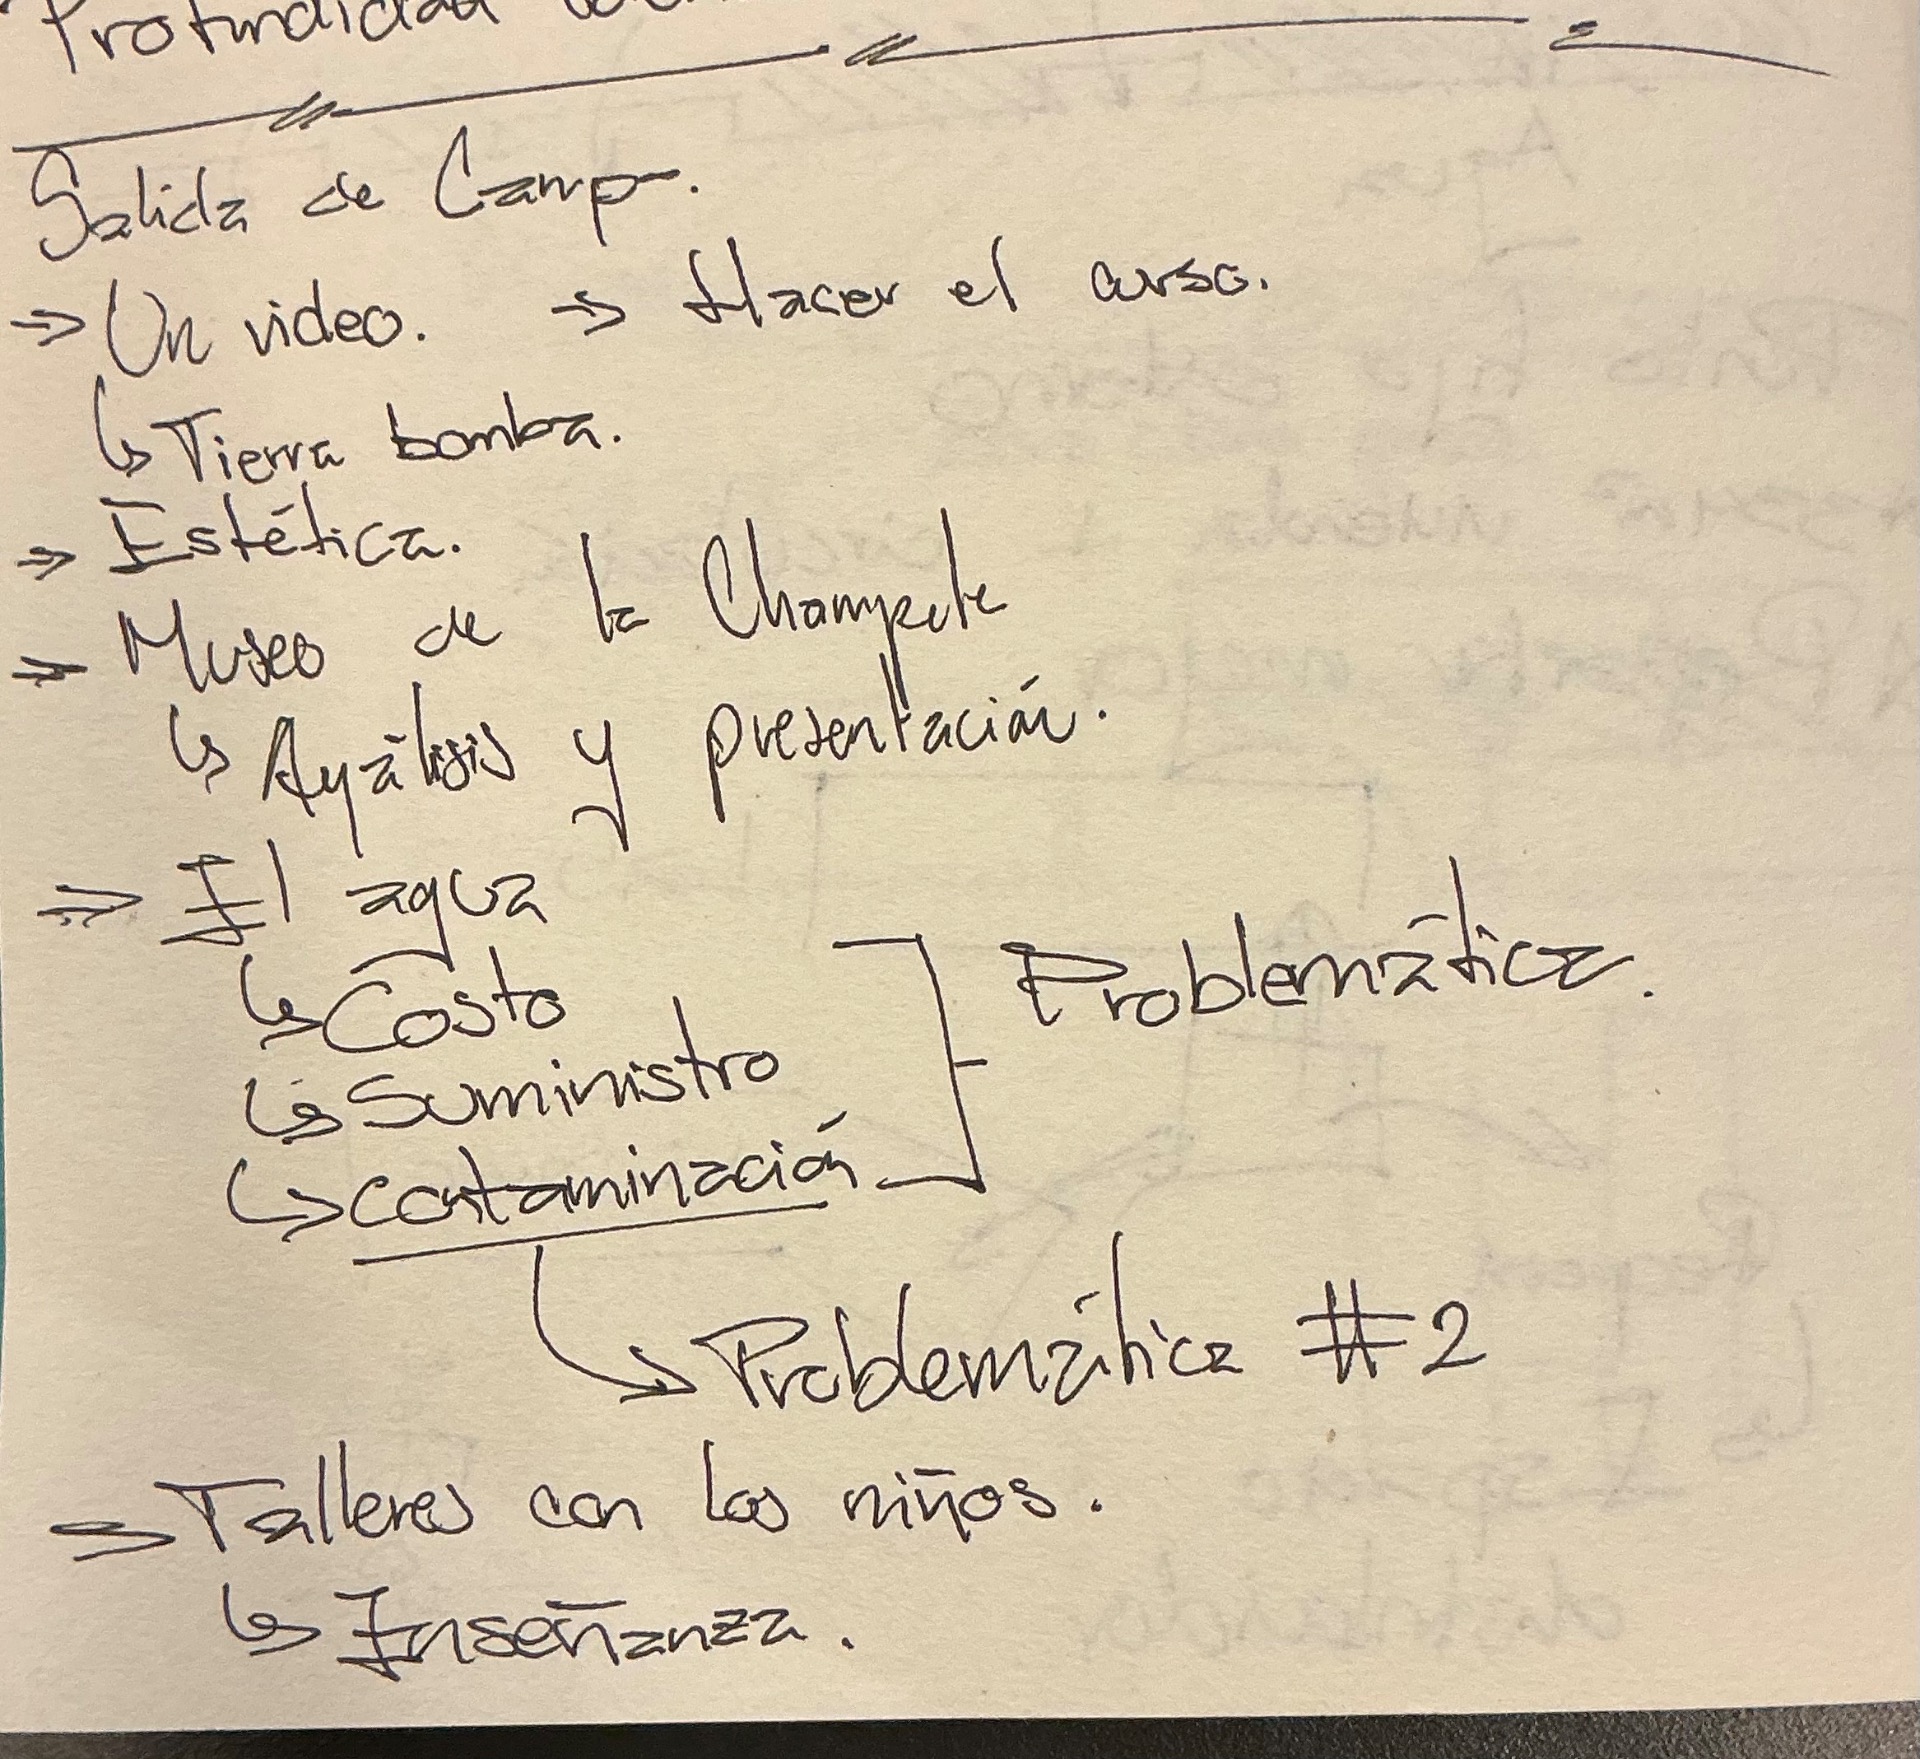 Profundidad
Salida de Campo.
⇒ Un video. → Hacer el curso.
↳ Tierra bomba.
⇒ Estética.
⇒ Museo de la Champeta
↳ Análisis y presentación.
⇒ El agua
↳ Costo
↳ Suministro
↳ contaminación
Problemática.
↳ Problemática #2
⇒ Talleres con los niños.
↳ Enseñanza.